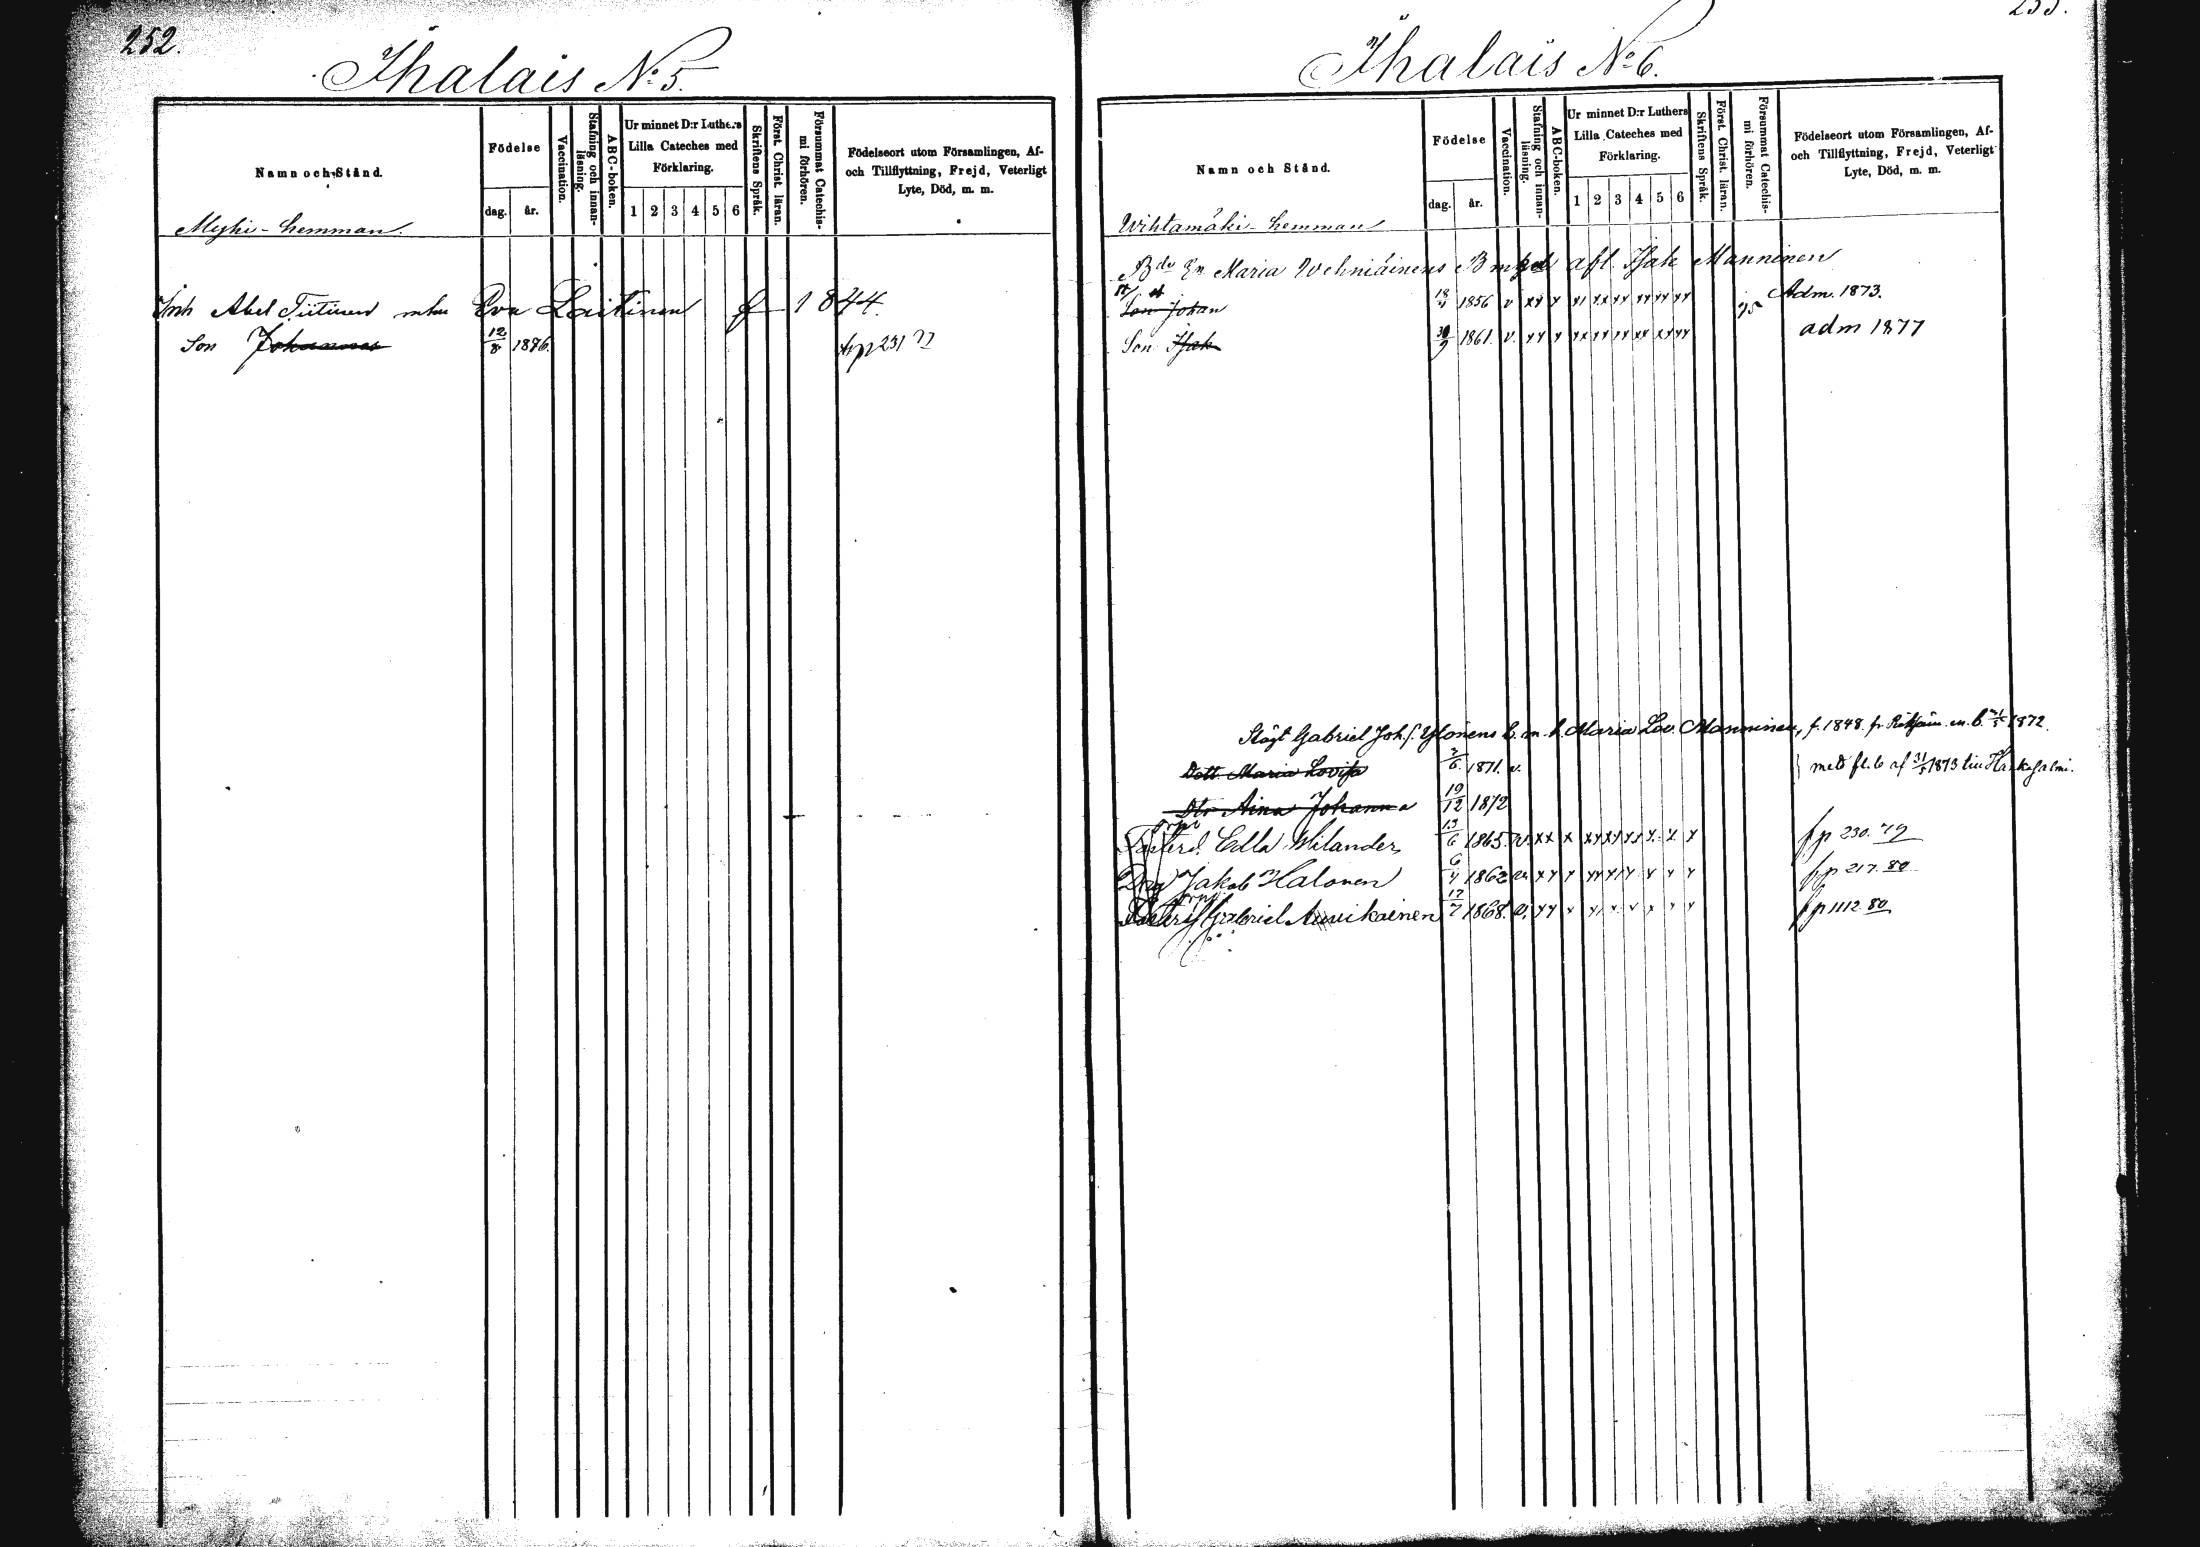 252.
Ihalais No 5.
Namn och Stånd.
Födelse
dag. år.
Vaccination.
Stafning och innan-läsning.
ABC-boken.
Ur minnet D:r Luthers
Lilla Cateches med
Förklaring.
1 2 3 4 5 6
Skriftens Språk.
Först. Christ. läran.
Försummat Catechis-
mi förhören.
Födelseort utom Församlingen, Af-
och Tillflyttning, Frejd, Veterligt
Lyte, Död, m. m.
Myhi-hemman.
Inh Abel Tiitinen Eva Laitinen f 1844.
Son Johannes 12/8 1876. 231 77
253.
Ihalais No 6.
Namn och Stånd.
Födelse
dag. år.
Vaccination.
Stafning och innan-läsning.
ABC-boken.
Ur minnet D:r Luthers
Lilla Cateches med
Förklaring.
1 2 3 4 5 6
Skriftens Språk.
Först. Christ. läran.
Försummat Catechis-
mi förhören.
Födelseort utom Församlingen, Af-
och Tillflyttning, Frejd, Veterligt
Lyte, Död, m. m.
Wihtamäki-hemman
Maria Wehniäinens afl. Isak Manninen
Son Johan 1856 v xx x 75 Adm. 1873.
Son Isak 30/9 1861. v. adm 1877
Gabriel Joh. s. Ylönens h. m. h. Maria Lov. Manninen, f. 1848. fr. 1872.
Dott. Maria Lovisa 1871. v. med fl. b af 1873 till Hankasalmi.
Dtr Aina Johanna 19/12 1872
Fosterd. Edla Wilander 13/6 1865. v. fp 230. 79
Drg Jakob Halonen 1862 fp 217. 80
Gabriel 17/7 1868. v. fp 1112 80